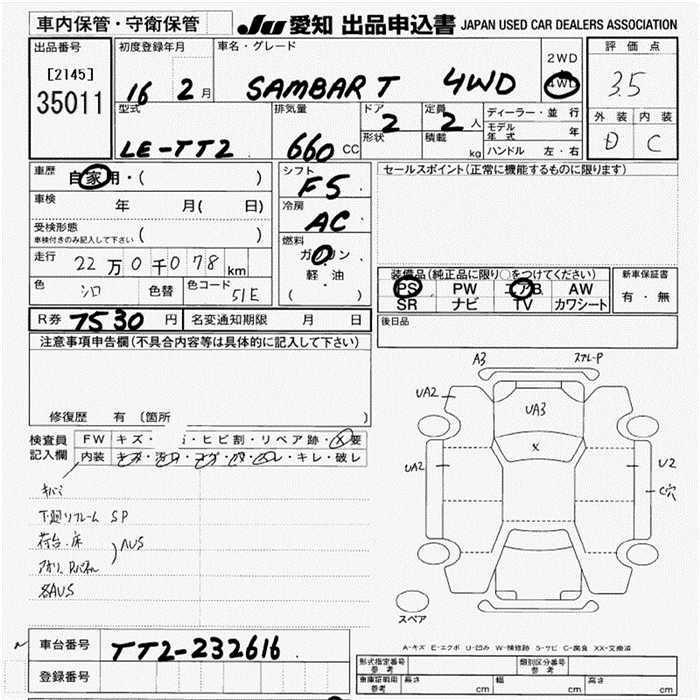 車内保管・守衛保管 JU 愛知 出品申込書 JAPAN USED CAR DEALERS ASSOCIATION
出品番号 初度登録年月 車名・グレード 評価点
[2145] 2WD
35011 16 2月 SAMBAR T 4WD 4WD 3.5
型式 排気量 ドア 定員 ディーラー・並行 外装 内装
2 2人 モデル年式 年 D C
LE-TT2 660 CC 形状 積載 kg ハンドル 左・右
車歴 自家用・( ) シフト F5 セールスポイント(正常に機能するものに限ります)
車検 年 月( 日) 冷房 AC
受検形態
車検付きのみ記入して下さい ( ) 燃料
走行 22万0千078 km ガソリン
軽・油 装備品(純正品に限り○をつけてください) 新車保証書
色 シロ 色替 色コード 51E ( ) PS PW エアB AW 有・無
SR ナビ TV カワシート
R券 7530 円 名変通知期限 月 日 後日品
注意事項申告欄(不具合内容等は具体的に記入して下さい)
A3 スプレーP
UA2
UA3
修復歴 有 (箇所 )
検査員 FW キズ・ ・ヒビ割・リペア跡・X要 X
記入欄 内装 キズ・汚れ・コゲ・穴・スレ・キレ・破レ UA2 U2
C穴
キバミ
下廻リフレーム SP
荷台.床
AUS
アオリ.Rパネル
各AUS
スペア
A-キズ E-エクボ U-凹み W-補修跡 S-サビ C-腐食 XX-交換済
車台番号 TT2-232616
型式指定番号 参考 類別区分番号 参考
登録番号 車庫証明用 参考 長さ cm 幅 cm 高さ cm